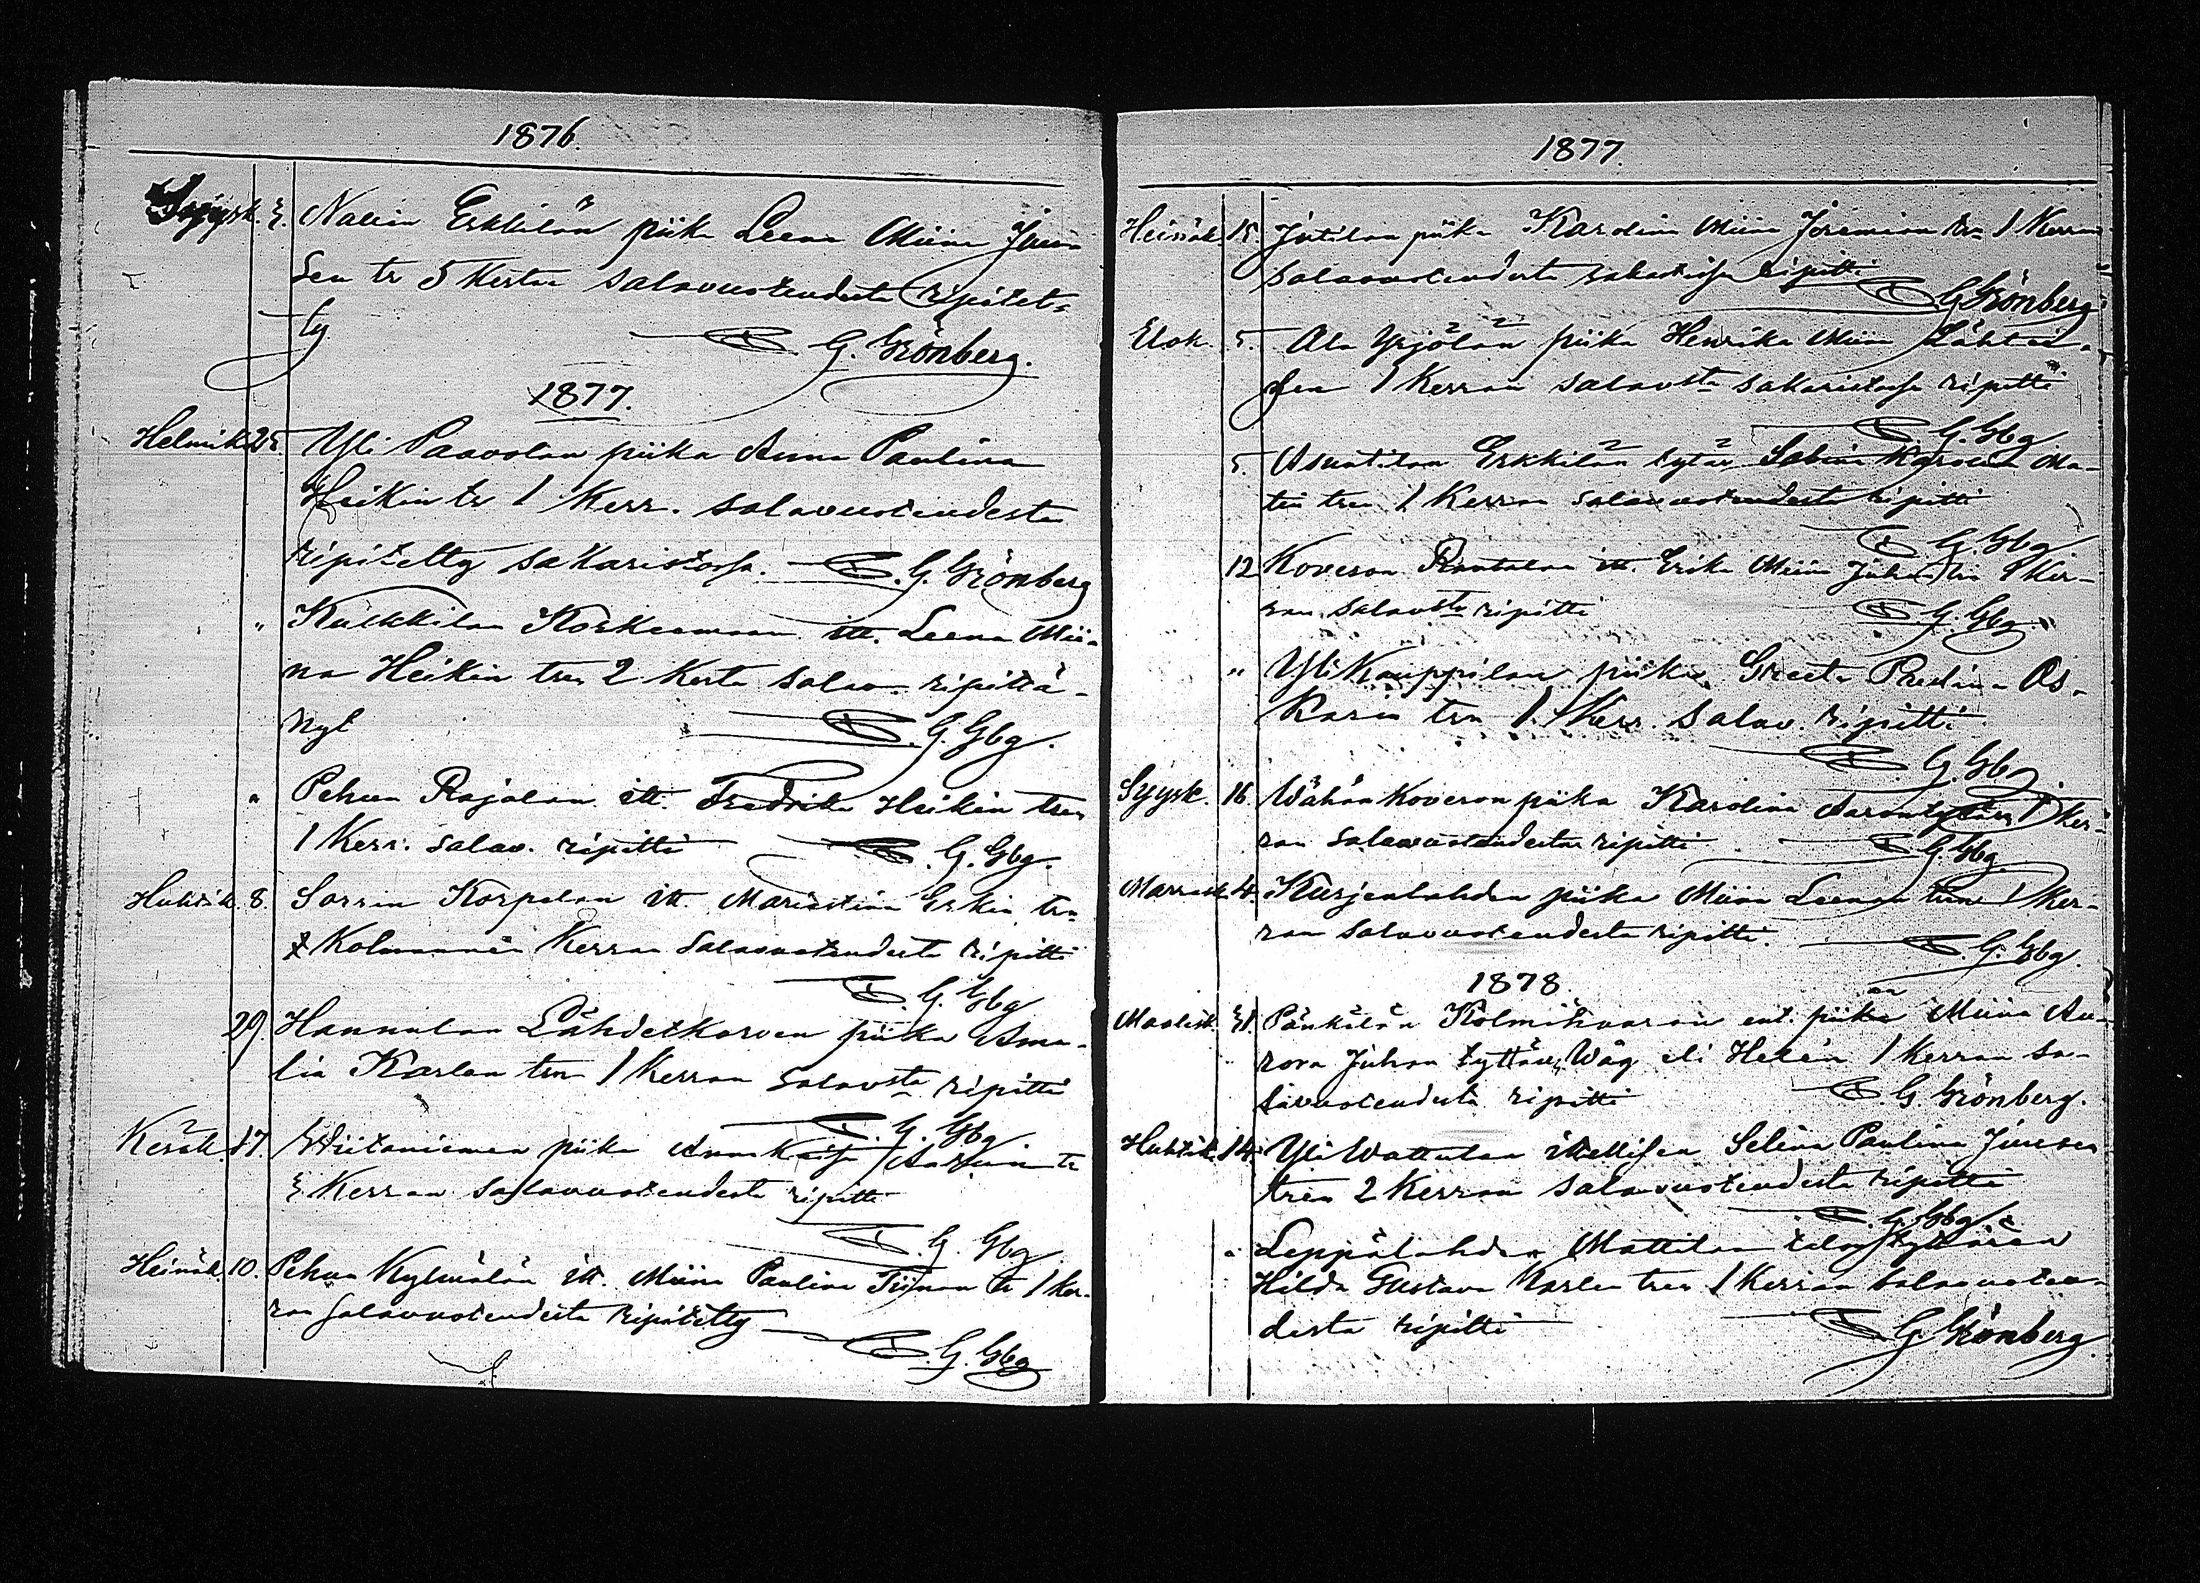 1876.
Syysk. 3. Nallin Erkkilän piika Leena Miina Juus
sen tr 5 Kertaa salavuoteudesta ripitet-
ty G. Grönberg.
1877.
Helmik. 25. Yli Paavolan piika Anna Paulina
Heikin tr 1 Kerr. salavuoteudesta
ripitetty sakaristossa. G. Grönberg
" Kulkkilan Korkeamaan itt. Leena Mii-
na Heikin tren 2 Kerta salav. ripittä-
nyt G. Gbg.
" Pehun Rajalan itt. Fredrika Heikin tren
1 Kerr. salav. ripitti G. Gbg.
Huhtik. 8. Sorrin Korpelan itt. Maristina Erkin trn
Kolmannen Kerran salavuoteudesta ripitti
G. Gbg
29. Hannulan Lähdetkorven piika Ama-
lia Karlen trn 1 Kerran salavsta ripitti
G. Gbg.
Kesäk. 17. Wiitaniemen piika Anna Kaisa tr
3 Kerran salavuoteudesta ripitti
G. Gbg
Heinäk. 10. Pehun Kylmälän itt. Miina Paulina Tiinan tr 1 ker-
ran salavuoteudesta ripitetty
G. Gbg
1877.
Heinäk. 15. Jutilan piika Karolina Miina Jeremian trn 1 Kerran
salavuoteudesta sakastissa ripitti
G Grönberg
Elok. 5. Ala Yrjölän piika Henrika Miina Lähtei-
sen 1 Kerran salavsta sakaristossa ripitti
G. Gbg
5. Asuntilan Erkkilän tytär Sabina Karolina Ma-
tin tren 1 Kerran salavuoteudesta ripitti
G. Gbg
12 Koveron Rantalan itt. Erika Miina Juhan trn 1 Ker-
ran salavsta ripitti G. Gbg.
" Yli Kauppilan piika Greeta Paulina Os-
karin trn 1. Kerr. salav. ripitti
G. Gbg.
Syysk. 16. Wähän Koveron piika Karolina Aarontytären 1 ker-
ran salavuoteudesta ripitti G. Gbg
Marrask. 4. Kurjenlahden piika Miina Leenan tren 1 Ker-
ran salavuoteudesta ripitti. G. Gbg.
1878.
Maalisk. 31. Pänkälän Kolmihaaran ent. piikaa Miina Au-
rora Juhan tyttären Wäg eli Helén 1 kerran sa-
lavuoteudesta ripitti G. Grönberg.
Huhtik. 14. Yli Wattulan itsellisen Selina Paulina Juusen
tren 2 Kerran salavuoteudesta ripitti
G. Gbg.
" Leppälahden Mattilan tal. tyttären
Hilda Gustava Karlen tren 1 Kerran salavuoteu-
desta ripitti G Grönberg.